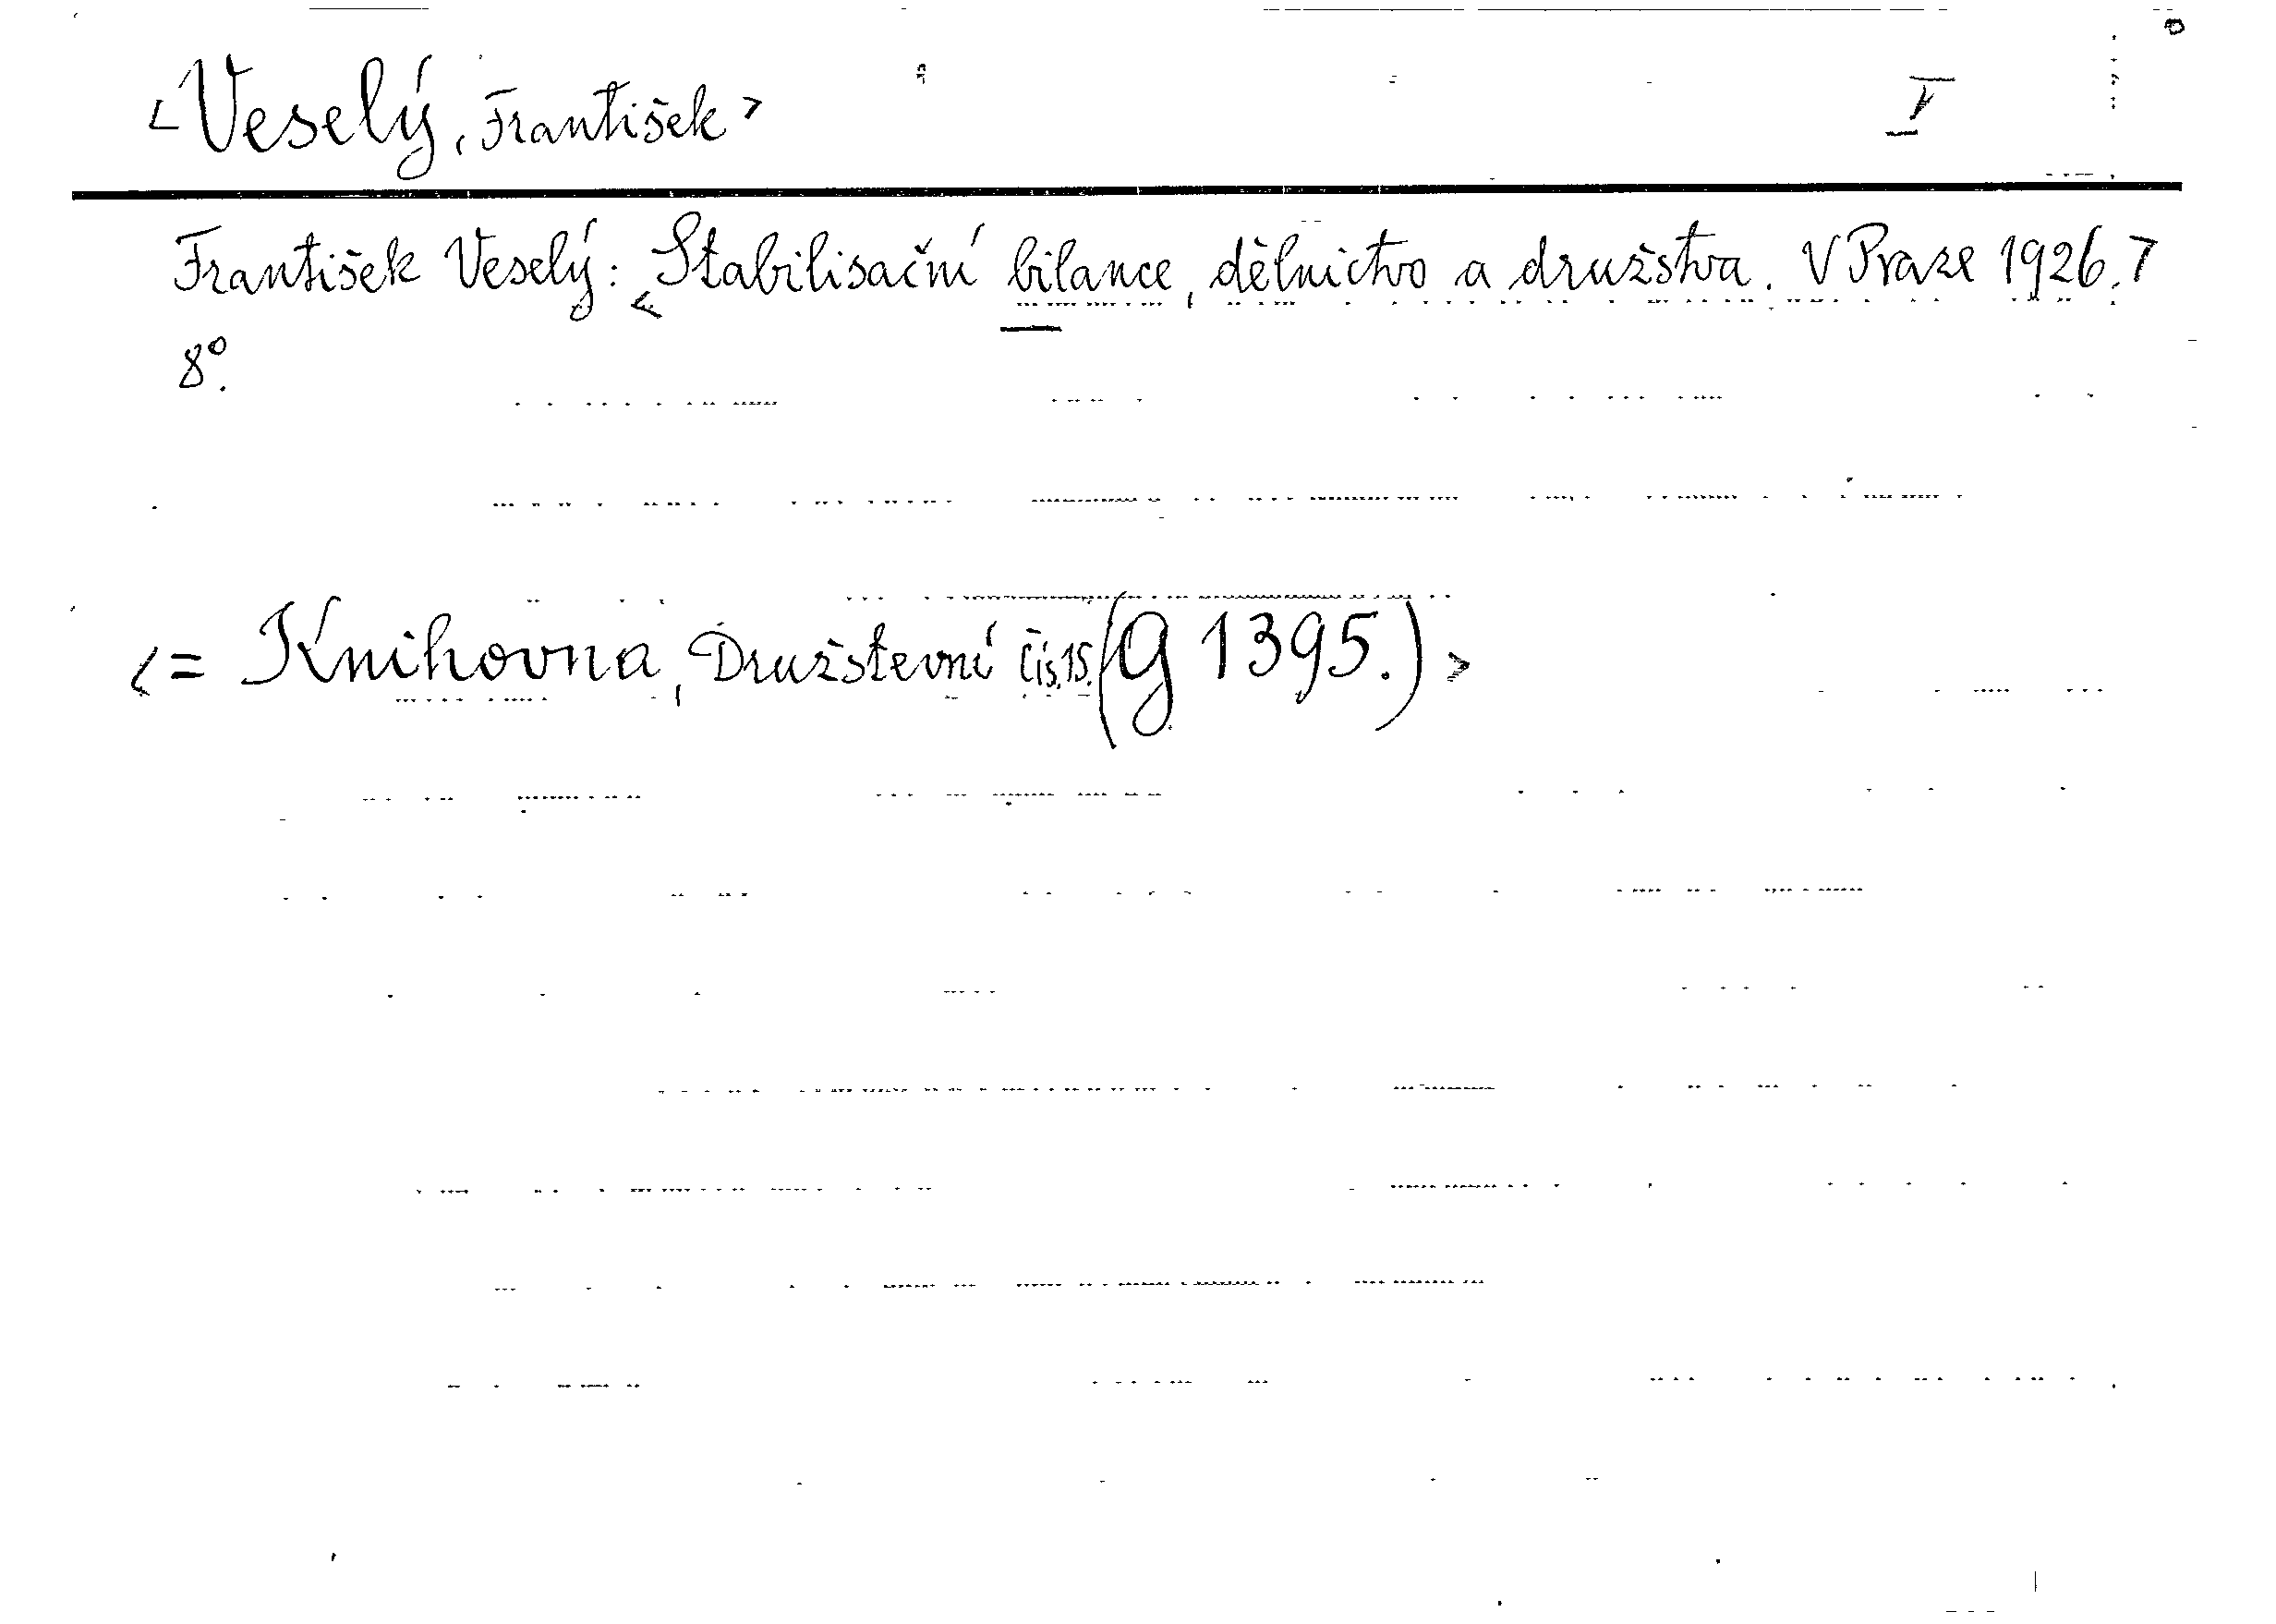 <Veselý, František> I
František Veselý: <Stabilisační bilance, dělnictvo a družstva. V Praze 1926.>
8º.
<= Knihovna, Družstevní čís. 15. (G 1395.)>